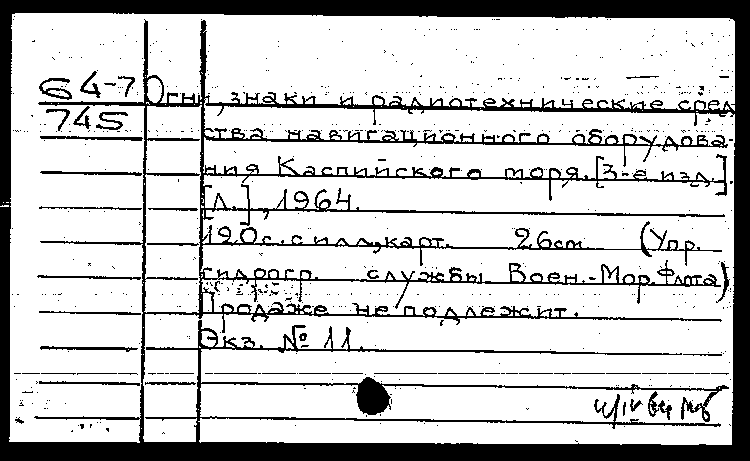 64-7
745
Огни, знаки и радиотехнические сред
ства навигационного оборудова-
ния Каспийского моря. [3-е изд.].
[Л.], 1964.
120 с. с илл., карт. 26 cm (Упр.
гидрогр. службы Воен.-Мор. Флота)
Продаже не подлежит.
Экз. № 11.